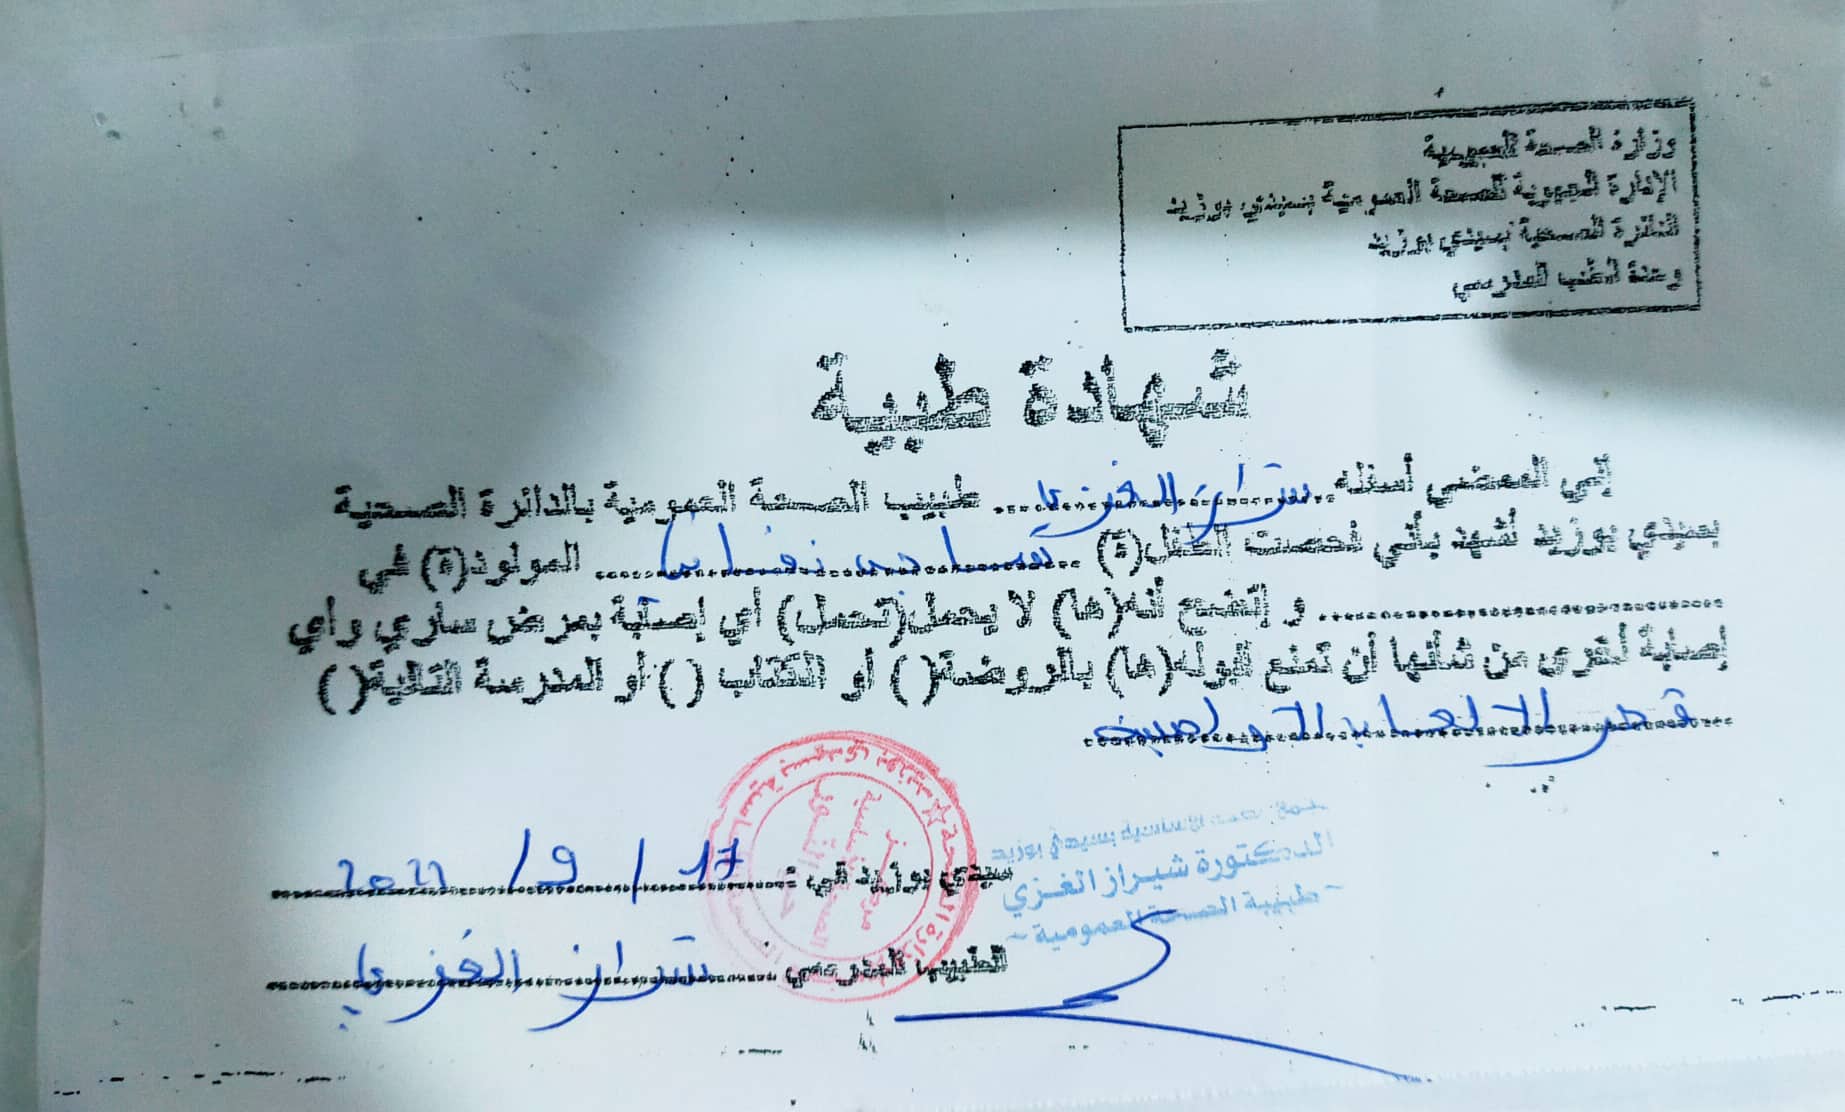 وزارة الصحة العمومية
الإدارة الجهوية للصحة العمومية بسيدي بوزيد
الدائرة الصحية بسيدي بوزيد
وحدة الطب المدرسي
شهادة طبية
إني الممضي أسفله شيراز الغزي طبيب الصحة العمومية بالدائرة الصحية
بسيدي بوزيد أشهد بأني فحصت الطفل(ة) المولود(ة) في
و إتضح أنه(ها) لا يحمل(تحمل) أي إصابة بمرض ساري وأي
إصابة أخرى من شأنها أن تمنع قبوله(ها) بالروضة( ) أو الكتاب ( ) أو المدرسة التالية( )
قصر الالعاب
الصحة الأساسية بسيدي بوزيد
الدكتورة شيراز الغزي
- طبيبة الصحة العمومية -
سيدي بوزيد في : 17 / 9 /
الطبيب المدرسي : شيراز الغزي